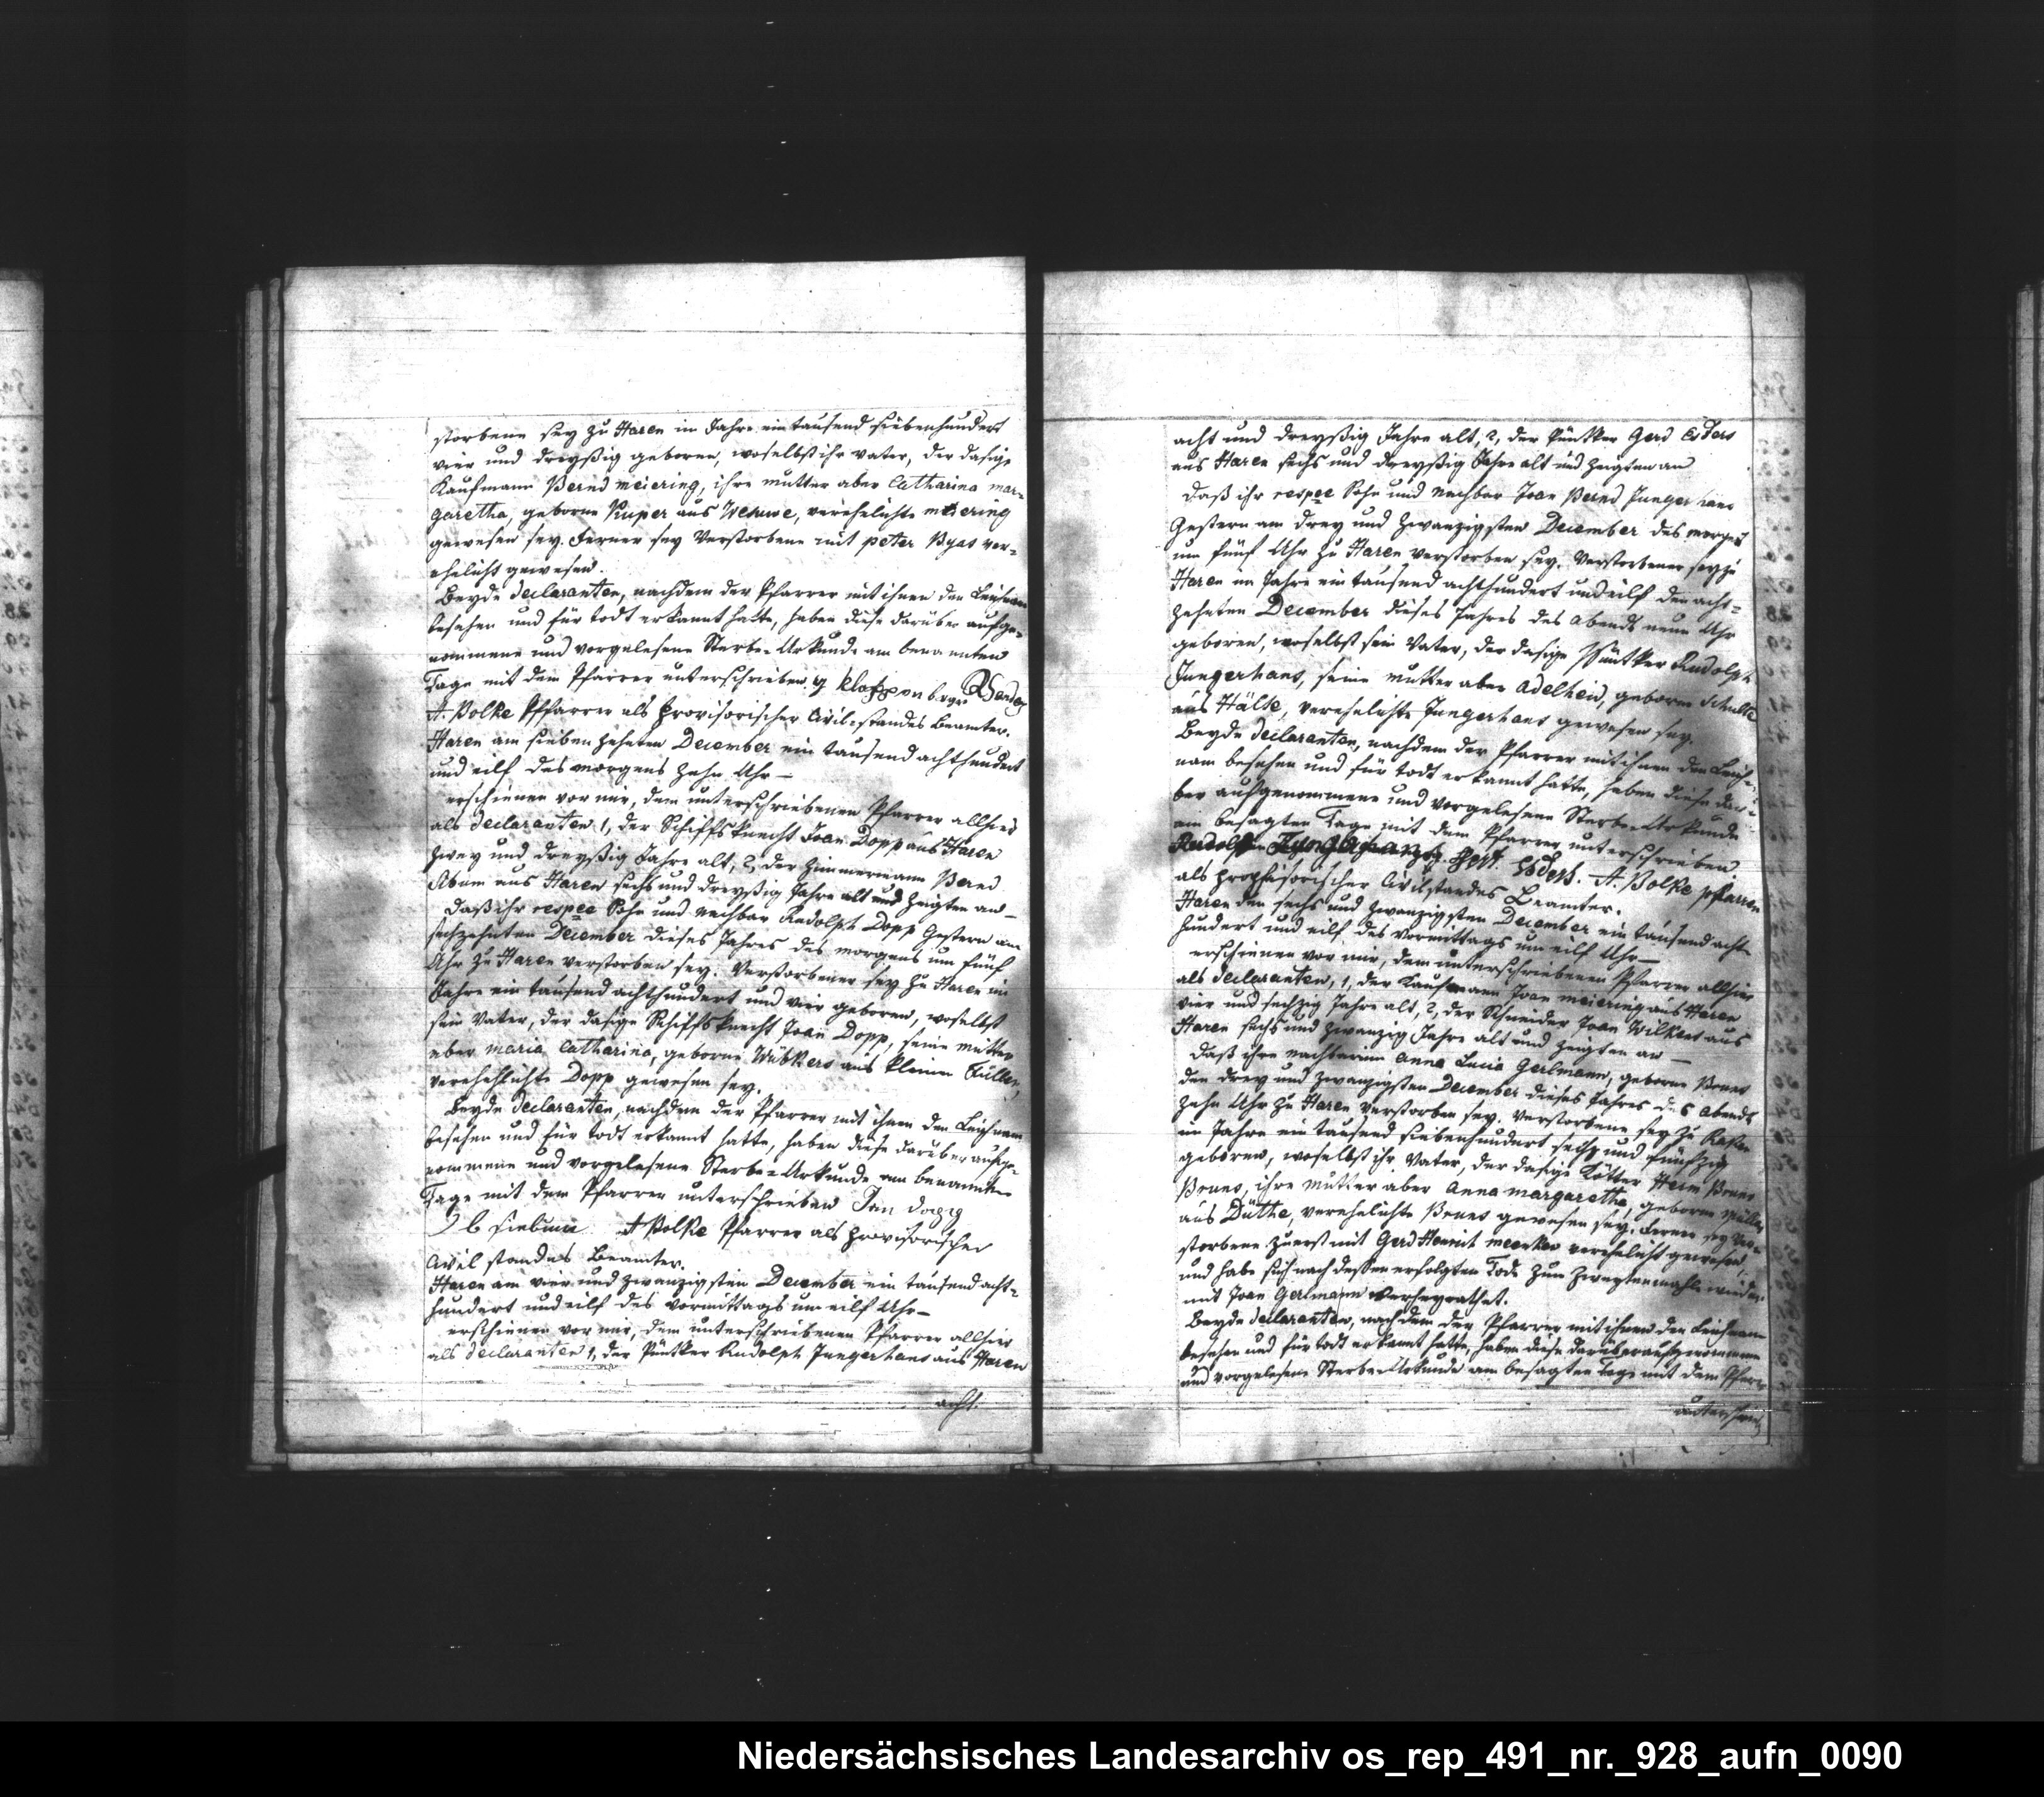 storbene sey zu Haren im Jahre ein tausend siebenhundert
vier und dreyßig geboren, woselbst ihr vater, der dasige
Kaufmann Bernd meiering, ihre mutter aber Catharina mar-
garetha, geborne Kuper aus Wesuwe, verehelichte meiering
gewesen sey. Ferner sey Verstorbene mit peter Byas ver-
ehelicht gewesen.
Beyde Declaranten, nachdem der Pfarrer mit ihnen den Leichnam
besehen und für todt erkannt hatte, haben diese darüber aufge-
nommene und vorgelesene Sterbe-Urkunde am benannten
Tage mit dem Pfarrer unterschrieben.
A. Bolke Pffarrer als provisorischer Civil-standes Beamter.
Haren am siebenzehnten December ein tausend achthundert
und eilf des morgens zehn Uhr —
erschienen vor mir, dem unterschriebenen Pfarrer allhier
als Declaranten 1, der Schiffsknecht Joan Dopp aus Haren
zwey und dreyßig Jahre alt, 2, der Zimmermann Bernd
aus Haren sechs und dreyßig Jahre alt und zeigten an —
Daß ihr respee Sohn und Nachbar Rudolph Dopp Gestern am
sechzehnten December dieses Jahres des morgens um fünf
Uhr zu Haren verstorben sey. Verstorbener sey zu Haren im
Jahre ein tausend achthundert und vier geboren, woselbst
sein Vater, der dasige Schiffsknecht Joan Dopp, seine mutter
aber maria Catharina, geborne Wübkers aus kleinen Fullen,
verehelichte Dopp gewesen sey.
Beyde Declaranten, nachdem der Pfarrer mit ihnen den Leichnam
besehen und für todt erkannt hatte, haben diese darüber aufge-
nommene und vorgelesene Sterbe-Urkunde am benannten
Tage mit dem Pfarrer unterschrieben Jan
A Bolke Pfarrer als provisorischer
Civil standes Beamter.
Haren am vier und zwanzigsten December ein tausend acht-
hundert und eilf des Vormittags um eilf Uhr —
erschienen vor mir, dem unterschriebenen Pfarrer allhier
als Declaranten 1, der Püntker Rudolph Jungerhans aus Haren
acht.
acht und dreyßig Jahre alt, 2, der Püntker Gerd Esders
aus Haren sechs und dreyßig Jahre alt und zeigten an
Daß ihr respee Sohn und Nachbar Joan Bernd Jungerhans
Gestern am drey und zwanzigsten December des morgens
um fünf Uhr zu Haren verstorben sey. Verstorbener sey zu
Haren im Jahre ein tausend achthundert und eilf den acht-
zehnten December dieses Jahres des Abends neun Uhr
geboren, woselbst sein Vater, der dasige Püntker Rudolph
Jungerhans, seine mutter aber Adelheid, geborne Schulte
aus Hälte, verehelichte Jungerhans gewesen sey.
Beyde Declaranten, nachdem der Pfarrer mit ihnen den Leich-
nam besehen und für todt erkannt hatte, haben diese darü-
ber aufgenommene und vorgelesene Sterbe-Urkunde
am besagten Tage mit dem Pfarrer unterschrieben.
Rudolf A. Bolke pfarrer
als prophisorischer Civilstandes Beamter.
Haren den sechs und zwanzigsten December ein tausend acht
hundert und eilf des Vormittags um eilf Uhr —
erschienen vor mir, dem unterschriebenen Pfarrer allhier
als Declaranten, 1, der Kaufmann Joan meiering aus Haren
vier und sechzig Jahre alt, 2, der Schneider Joan Wilkens aus
Haren sechs und zwanzig Jahre alt und zeigten an —
Daß ihre nachbarinn Anna Lucia Gerlmann, geborne Bruns
den drey und zwanzigsten December dieses Jahres des Abends
zehn Uhr zu Haren verstorben sey. Verstorbene sey zu
im Jahre ein tausend siebenhundert sechs und fünfzig
geboren, woselbst ihr Vater, der dasige Kötter Herm Bruns
Bruns, ihre mutter aber anna margaretha, geborne Müller
aus Düthe, verehelichte Bruns gewesen sey. Ferner sey Ver-
storbene zuerst mit Gerd Henrich verehelicht gewesen
und habe sich nach dessen erfolgten Tode zum zweytenmahle wieder
mit Joan Gerlmann Verheyrathet.
Beyde Declaranten, nachdem der Pfarrer mit ihnen den Leichnam
besehen und für todt erkannt hatte, haben diese darüber aufgenommene
und vorgelesene Sterbe-Urkunde am besagten Tage mit dem Pfarrer
Niedersächsisches Landesarchiv os_rep_491_nr._928_aufn_0090